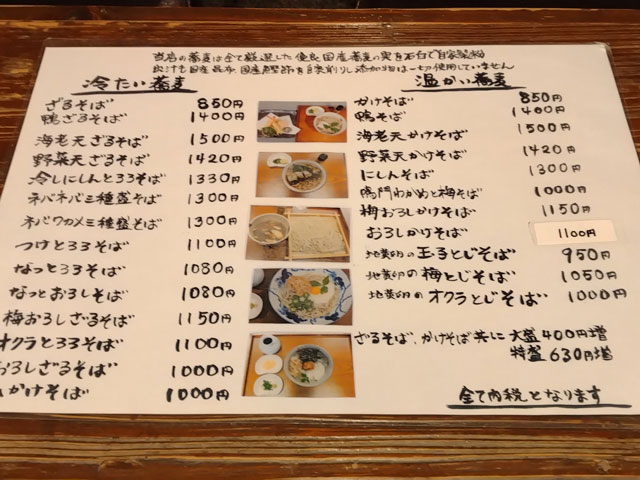 当店の蕎麦は全て厳選した優良国産蕎麦の実を石臼で自家製粉
出汁も国産昆布、国産鰹節を自家削りし添加物は一切使用していません
冷たい蕎麦
ざるそば 850円
鴨ざるそば 1400円
海老天ざるそば 1500円
野菜天ざるそば 1420円
冷しにしんとろろそば 1330円
ネバネバ三種盛そば 1300円
ネバワカメ三種盛そば 1300円
つけとろろそば 1100円
なっとろろそば 1080円
なっとおろしそば 1080円
梅おろしざるそば 1150円
オクラとろろそば 1100円
おろしざるそば 1000円
かけそば 1000円
温かい蕎麦
かけそば 850円
鴨そば 1400円
海老天かけそば 1500円
野菜天かけそば 1420円
にしんそば 1300円
鳴門わかめと梅そば 1000円
梅おろしかけそば 1150円
おろしかけそば 1100円
地養卵の玉子とじそば 950円
地養卵の梅とじそば 1050円
地養卵のオクラとじそば 1000円
ざるそば、かけそば共に 大盛400円増
特盛630円増
全て内税となります